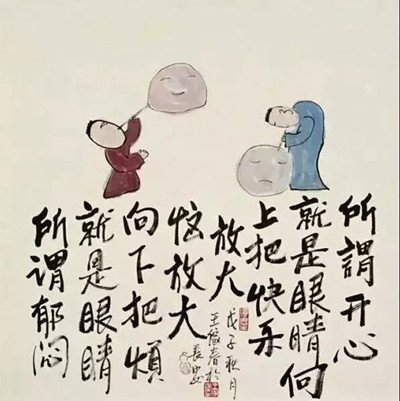 所謂开心
就是眼睛向
上把快乐
放大
所謂郁闷
就是眼睛
向下把煩
恼放大
戊子秋月
王家春於
長安